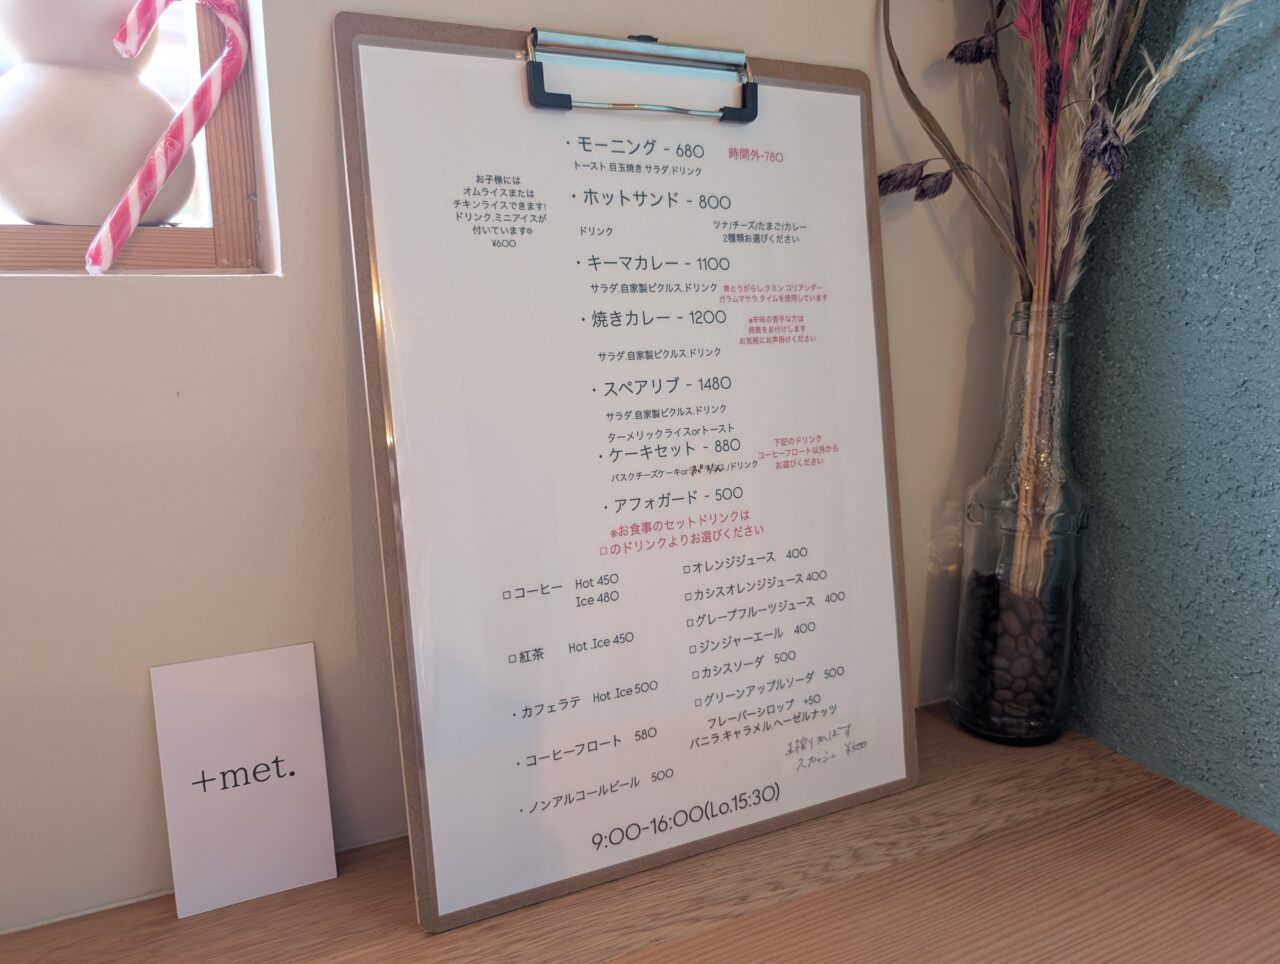 ・モーニング - 680 時間外-780
トースト.目玉焼き.サラダ.ドリンク
お子様には
オムライスまたは
チキンライスできます!
ドリンク.ミニアイスが
付いています☺
¥600
・ホットサンド - 800
ドリンク
ツナ/チーズ/たまご/カレー
2種類お選びください
・キーマカレー - 1100
サラダ.自家製ピクルス.ドリンク
青とうがらし.クミン.コリアンダー
ガラムマサラ.タイムを使用しています
・焼きカレー - 1200
※辛味の苦手な方は
卵黄をお付けします
お気軽にお声掛けください
サラダ.自家製ピクルス.ドリンク
・スペアリブ - 1480
サラダ.自家製ピクルス.ドリンク
ターメリックライスorトースト
・ケーキセット - 880
下記のドリンク
コーヒーフロート以外から
お選びください
バスクチーズケーキor /ドリンク
・アフォガード - 500
※お食事のセットドリンクは
□のドリンクよりお選びください
□コーヒー Hot 450
Ice 480
□紅茶 Hot .Ice 450
・カフェラテ Hot .Ice 500
・コーヒーフロート 580
・ノンアルコールビール 500
□オレンジジュース 400
□カシスオレンジジュース 400
□グレープフルーツジュース 400
□ジンジャーエール 400
□カシスソーダ 500
□グリーンアップルソーダ 500
フレーバーシロップ +50
バニラ.キャラメル.ヘーゼルナッツ
生搾りかぼす
スカッシュ ¥500
9:00-16:00(Lo.15:30)
+met.